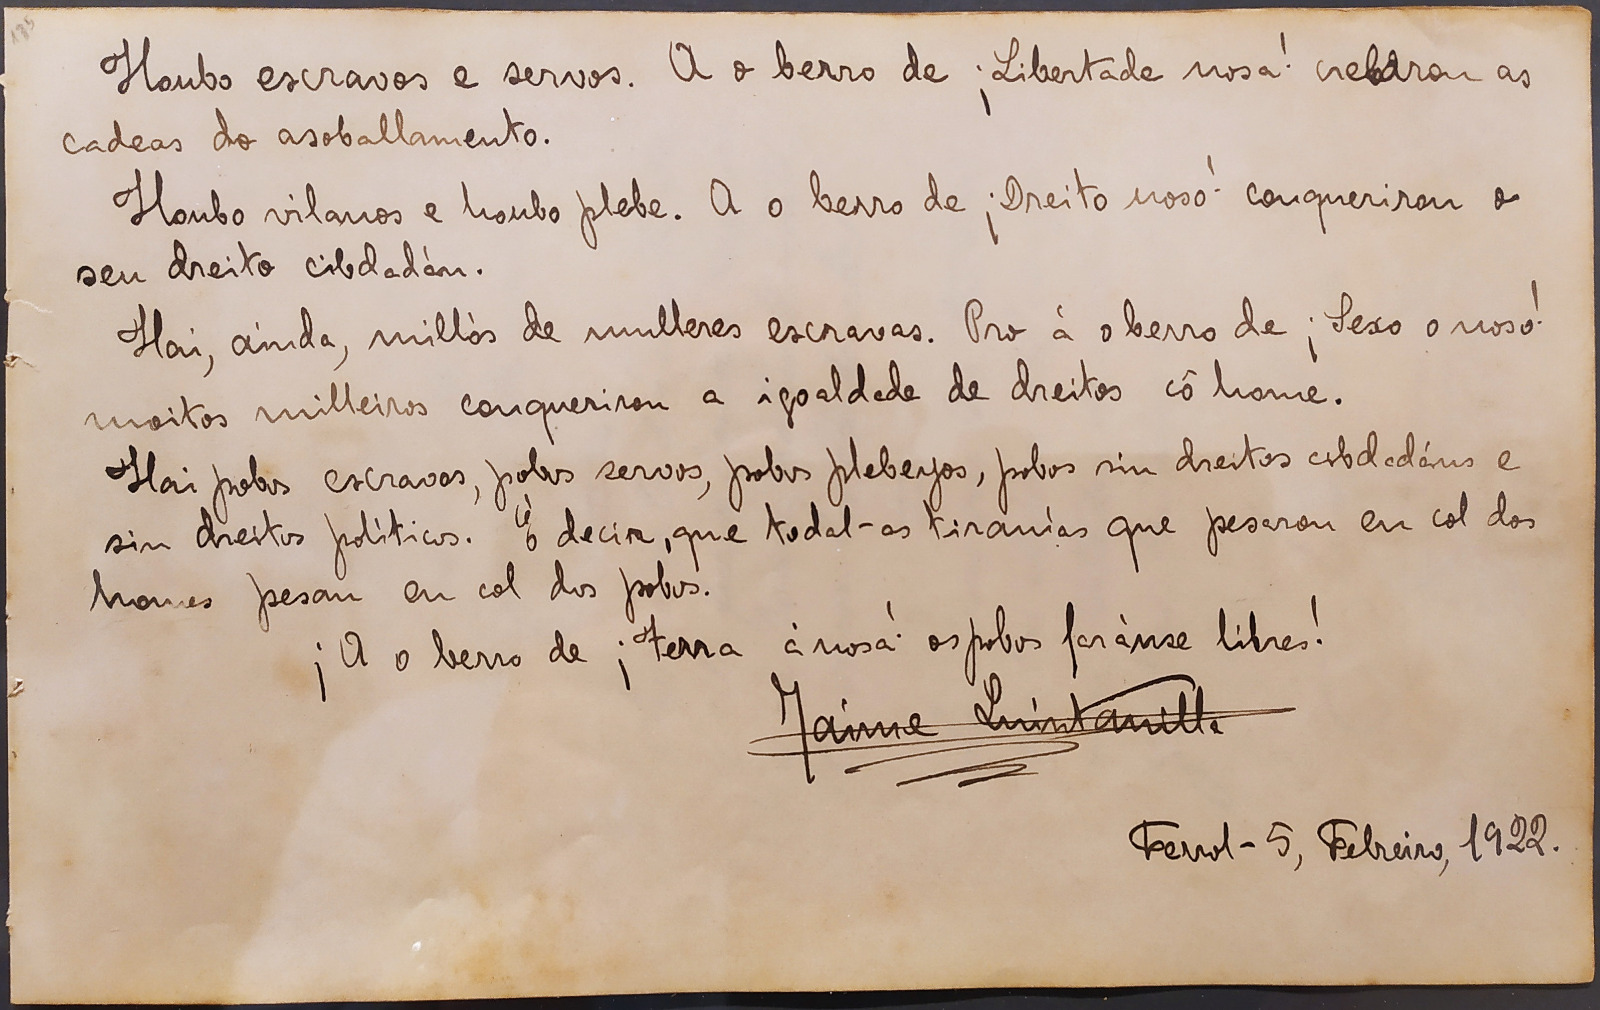 185
Houbo escravos e servos. A o berro de ¡Libertade nosa! crebaron as
cadeas do asoballamento.
Houbo vilanos e houbo plebe. A o berro de ¡Dreito noso! conqueriron o
seu dreito cibdadán.
Hai, ainda, millós de mulleres escravas. Pro á o berro de ¡Sexo o noso!
moitos milleiros conqueriron a igoaldade de dreitos có home.
Hai pobos escravos, pobos servos, pobos plebeyos, pobos sin dreitos cibdadáns e
sin dreitos políticos. É decir, que todal-as tiranías que pesaron en col dos
homes pesan en col dos pobos.
¡A o berro de ¡Terra á nosa! os pobos faránse libres!
Jaime Quintanilla
Ferrol - 5, Febreiro, 1922.